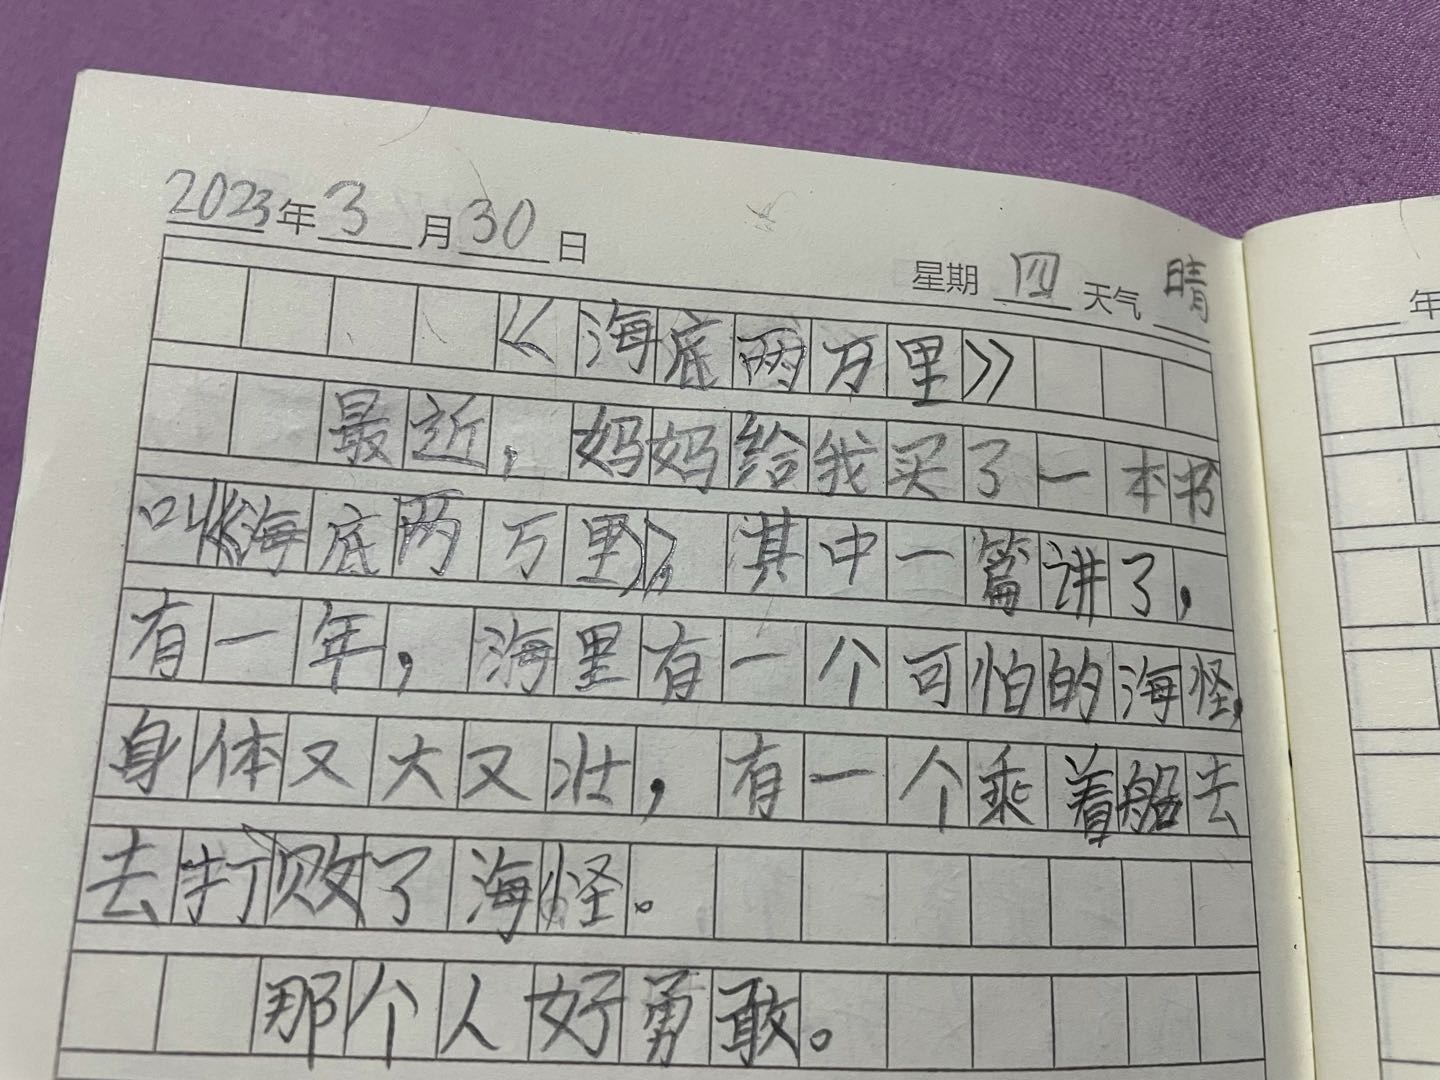 2023年3月30日 星期四 天气晴
《海底两万里》
最近，妈妈给我买了一本书
叫《海底两万里》，其中一篇讲了，
有一年，海里有一个可怕的海怪，
身体又大又壮，有一个乘着船去
去打败了海怪。
那个人好勇敢。
年